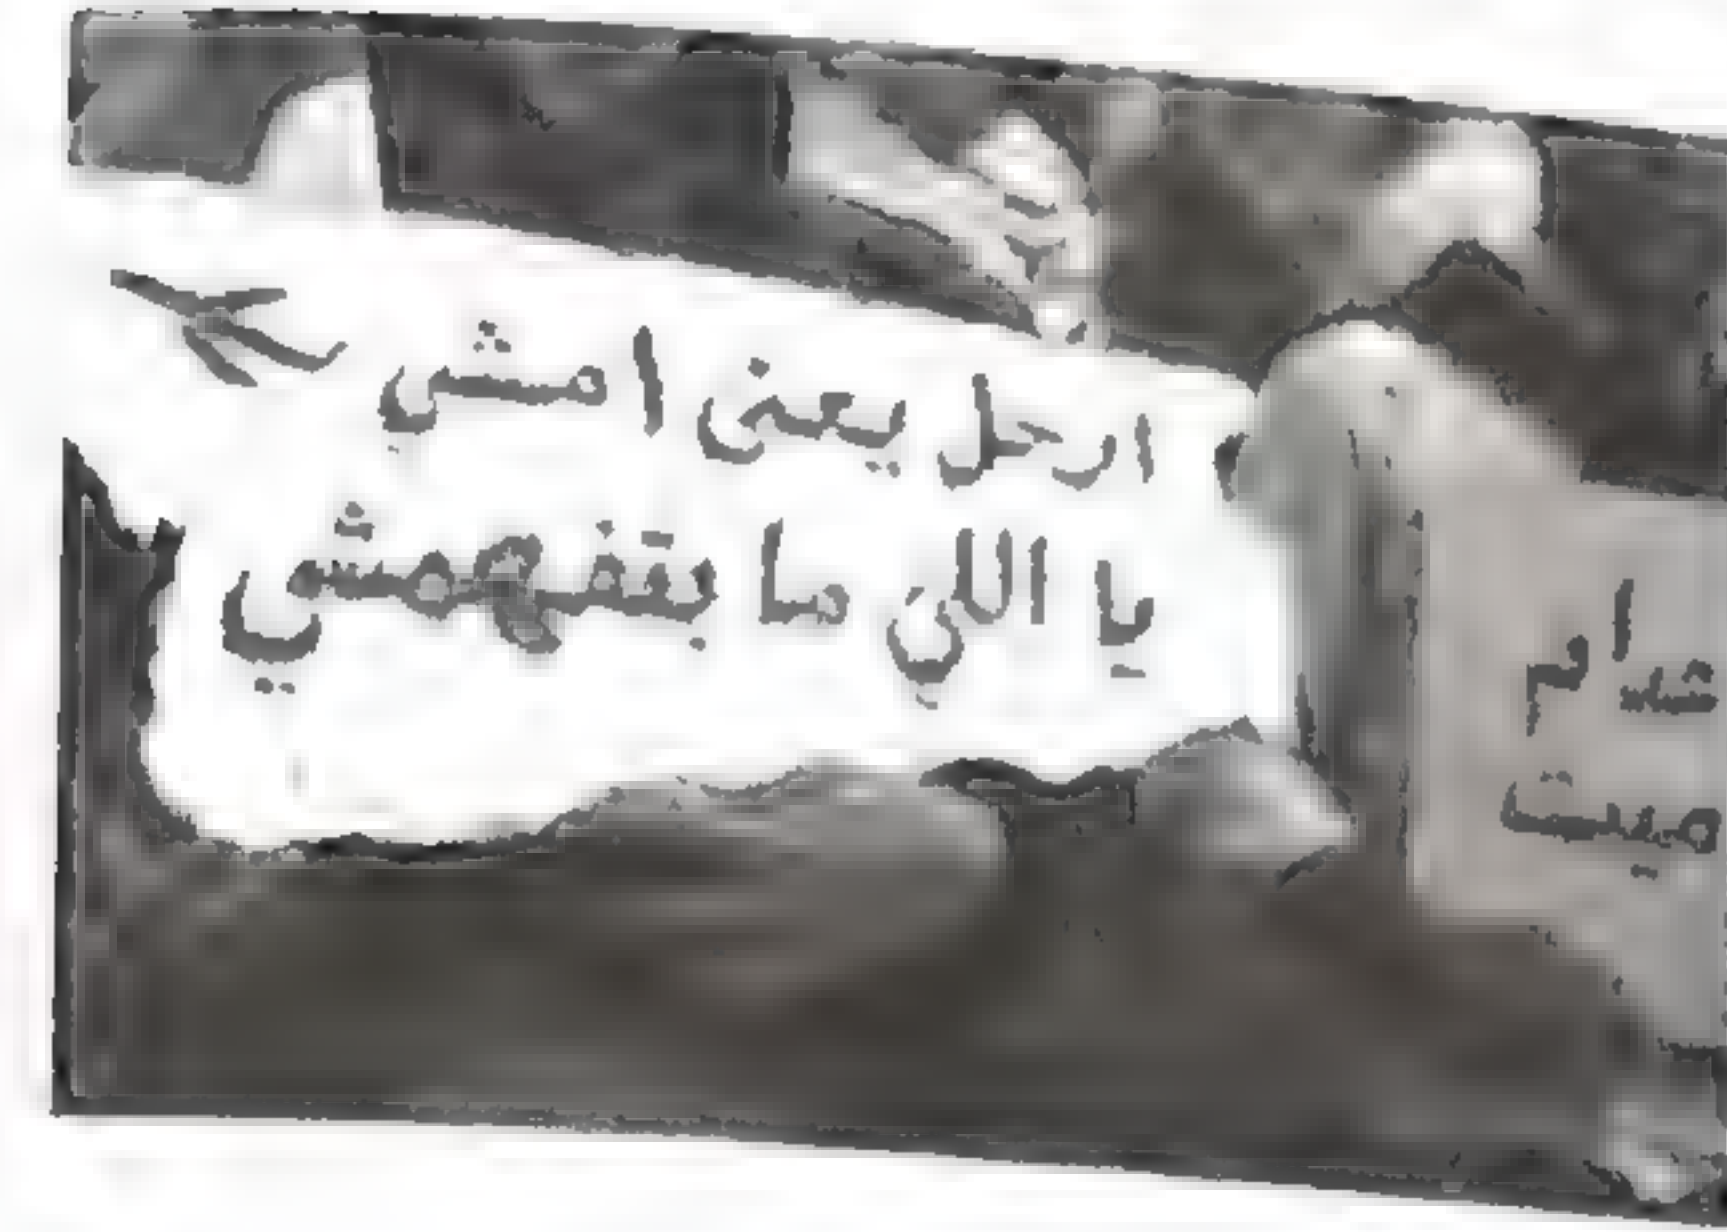 ارحل يعنى امشي
يا اللي ما بتفهمشي